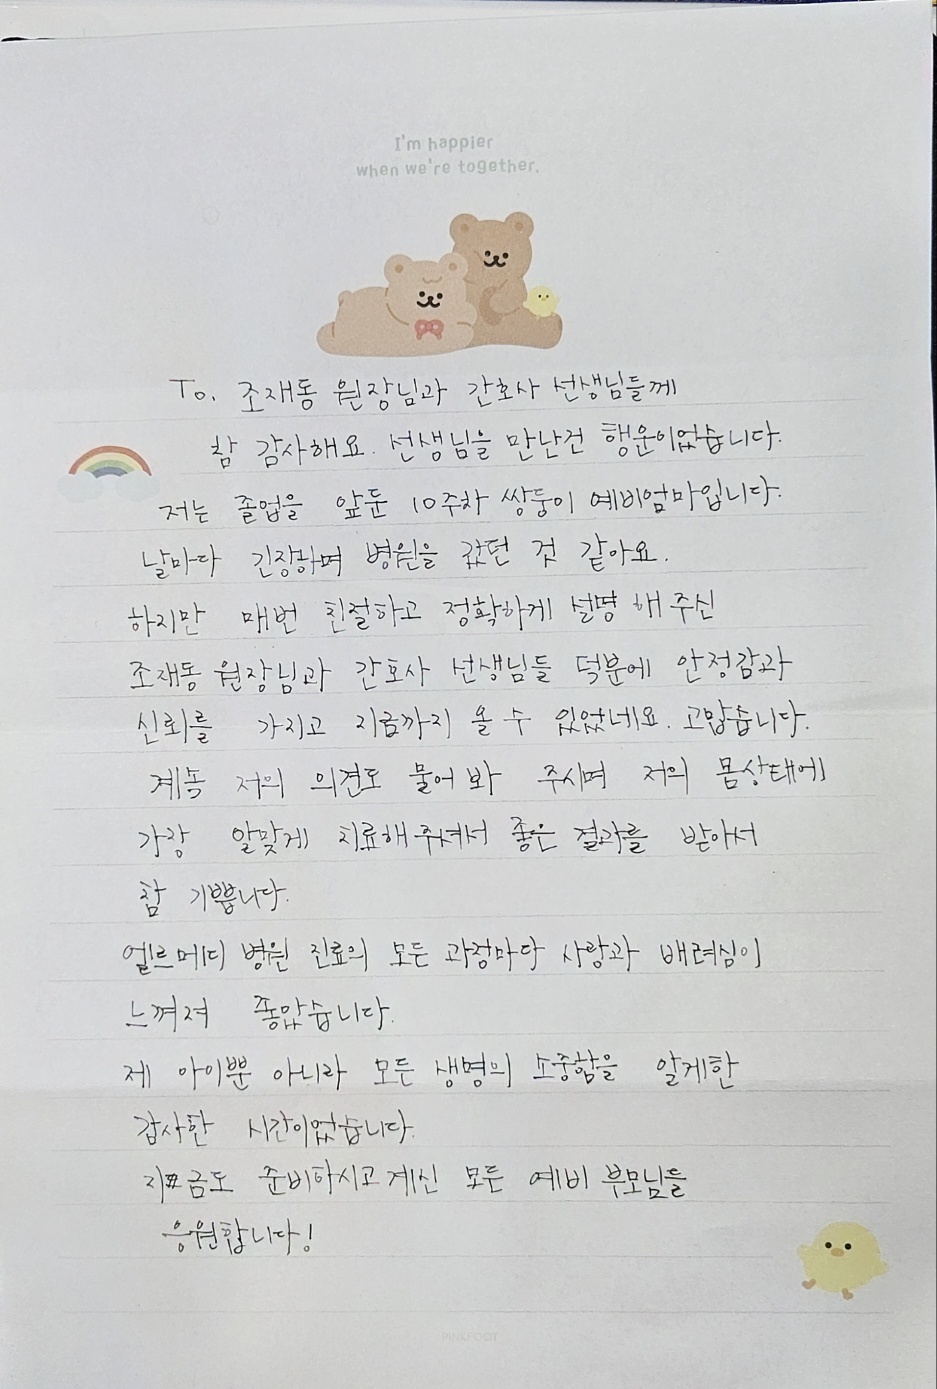 I'm happier
when we're together.
To. 조재동 원장님과 간호사 선생님들께
참 감사해요. 선생님을 만난건 행운이었습니다.
저는 졸업을 앞둔 10주차 쌍둥이 예비엄마입니다.
날마다 긴장하며 병원을 갔던 것 같아요.
하지만 매번 친절하고 정확하게 설명 해 주신
조재동 원장님과 간호사 선생님들 덕분에 안정감과
신뢰를 가지고 지금까지 올 수 있었네요. 고맙습니다.
계속 저의 의견도 물어 봐 주시며 저의 몸상태에
가장 알맞게 치료해주셔서 좋은 결과를 받아서
참 기쁩니다.
엘르메디 병원 진료의 모든 과정마다 사랑과 배려심이
느껴져 좋았습니다.
제 아이뿐 아니라 모든 생명의 소중함을 알게한
감사한 시간이었습니다.
지금도 준비하시고계신 모든 예비 부모님들
응원합니다!
PINKFOOT